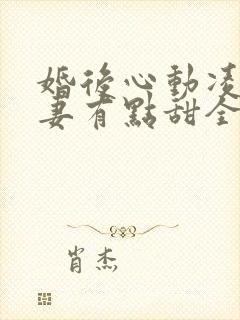 婚後心動凌
妻有點甜全
肖杰